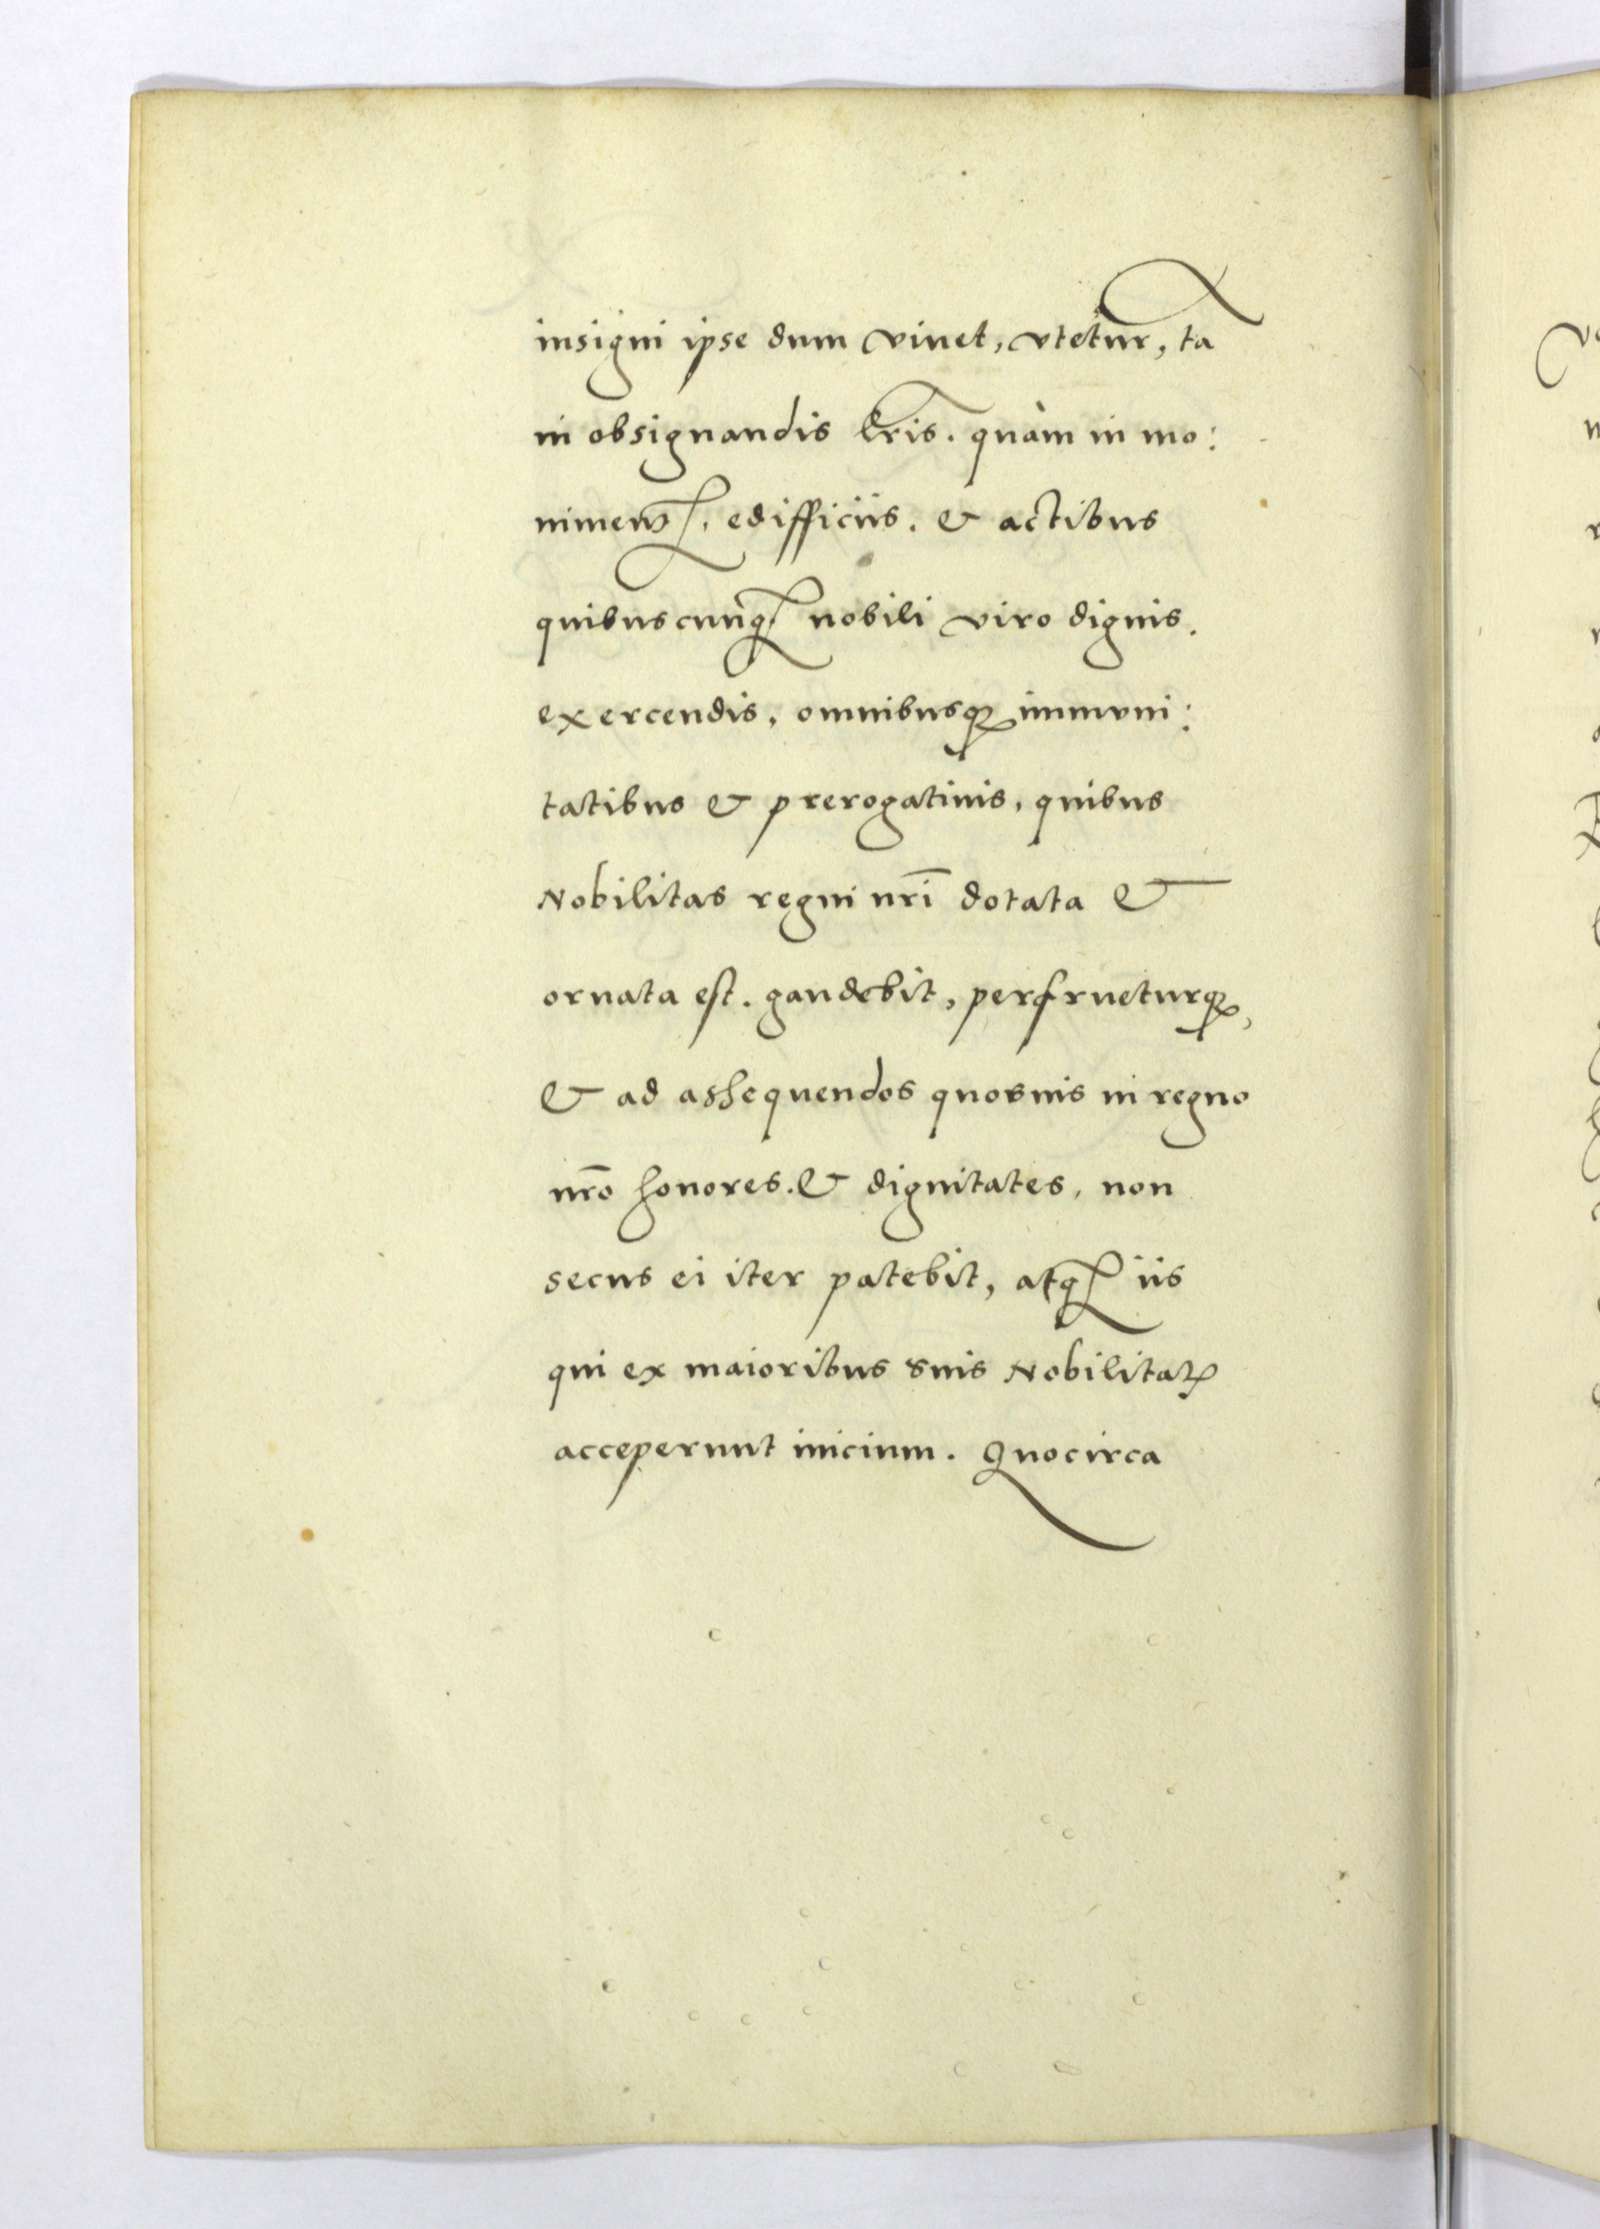 insigni ipse dum viuet, vtetur, tā
in obsignandis l̃ris. quàm in mo:
nimentꝭ. edifficiis. & actibus
quibuscunqꝫ nobili viro dignis.
exercendis, omnibusqꝫ immuni:
tatibus & prerogatiuis, quibus
Nobilitas regni nr̄i dotata &
ornata est. gaudebit, perfrueturqꝫ,
& ad assequendos quosuis in regno
nr̄o honores. & dignitates, non
secus ei iter patebit, atqꝫ iis
qui ex maioribus suis Nobilitatꝭ
acceperunt inicium. Quocirca